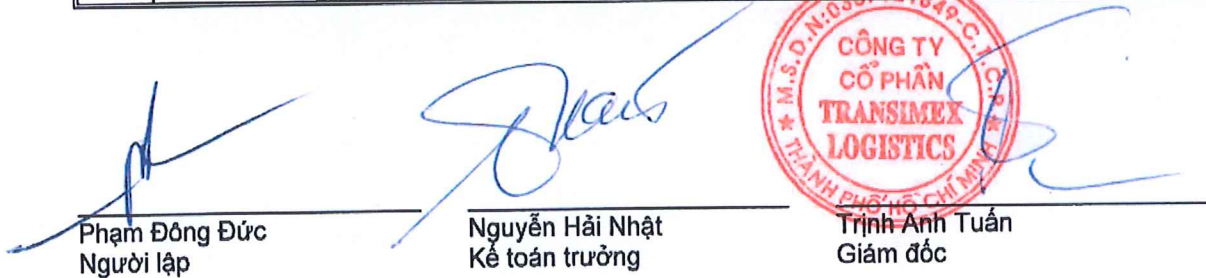 CÔNG TY
CỔ PHẦN
TRANSIMEX
LOGISTICS
THÀNH PHỐ HỒ CHÍ MINH
Phạm Đông Đức
Người lập
Nguyễn Hải Nhật
Kế toán trưởng
Trịnh Anh Tuấn
Giám đốc